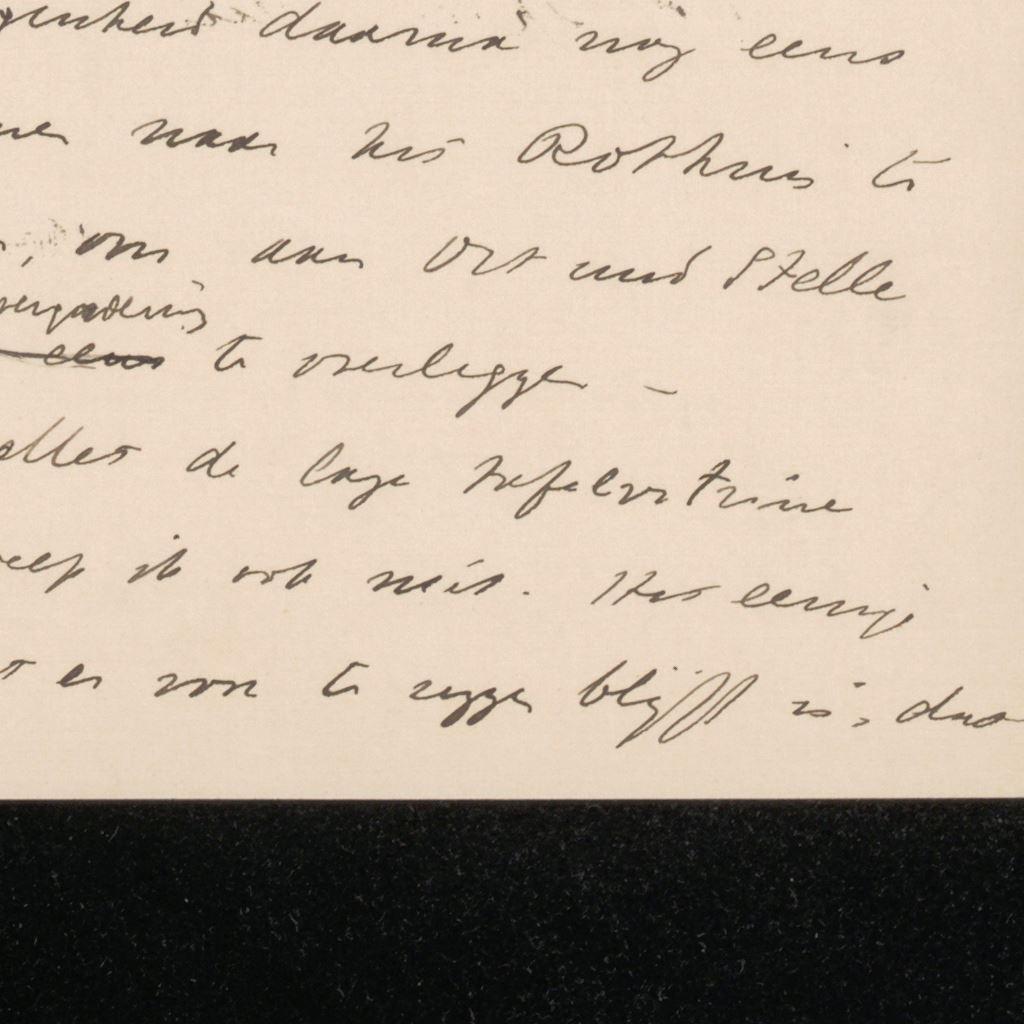 genheid daarna nog eens
naar het Rothuis te
, om aan Ort und Stelle
vergadering
eens te overleggen –
alles de lage tafelvitrine
ik ook niet. Het eenige
t er van te zeggen blijft is, dat